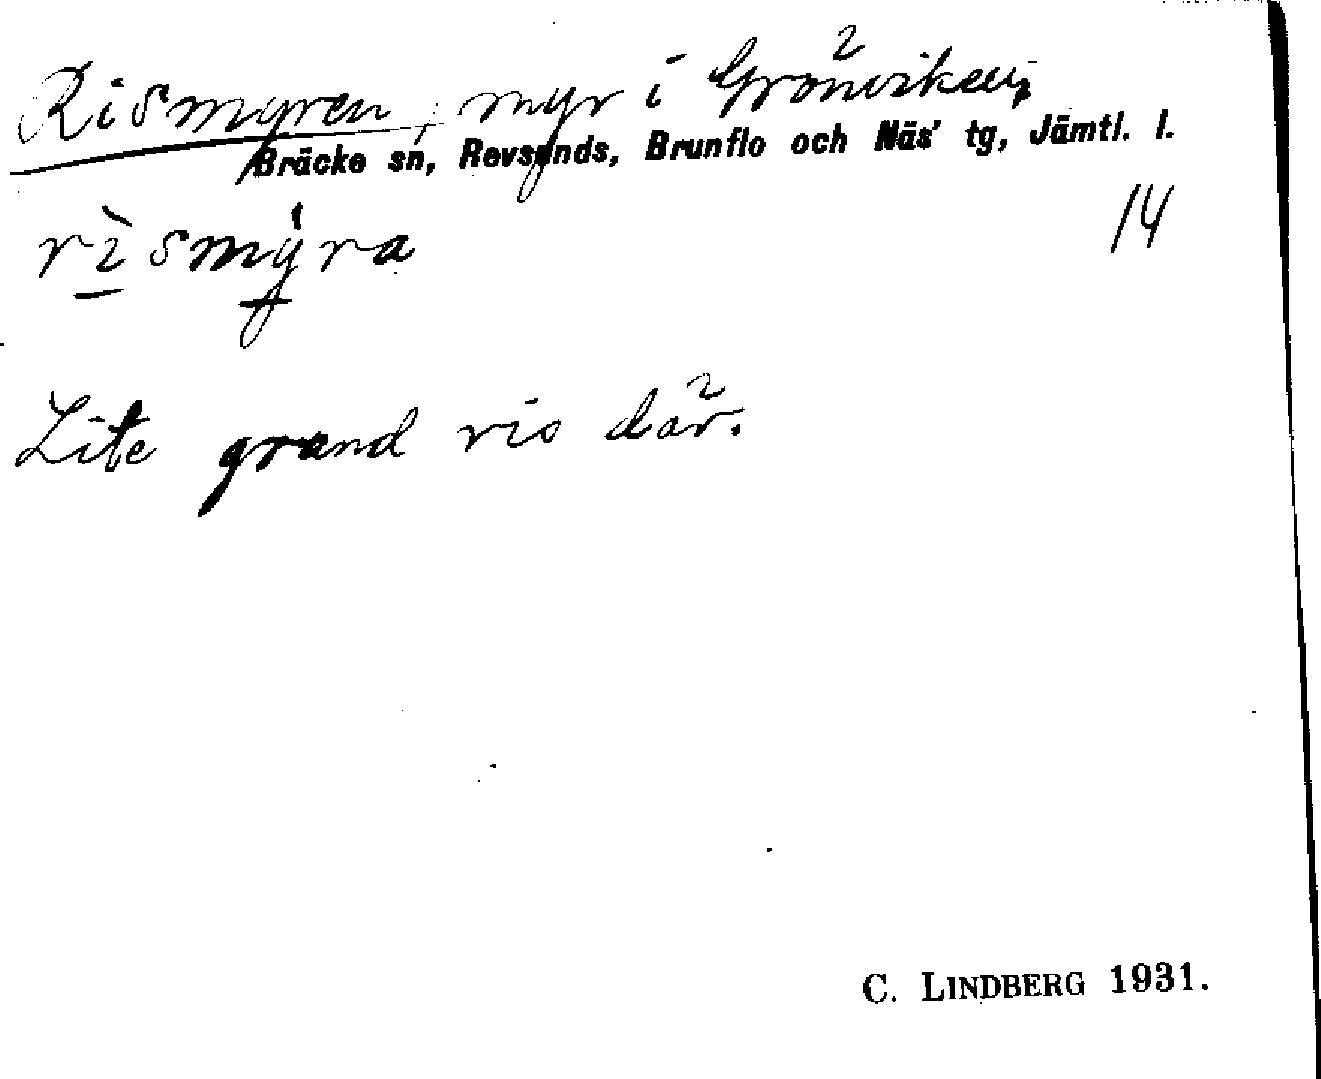 Rismyren, myr i Grönviken,
Bräcke sn, Revsunds, Brunflo och Näs' tg, Jämtl. l.
14
rìsmy̆ra
Lite grand ris där.
C. LINDBERG 1931.